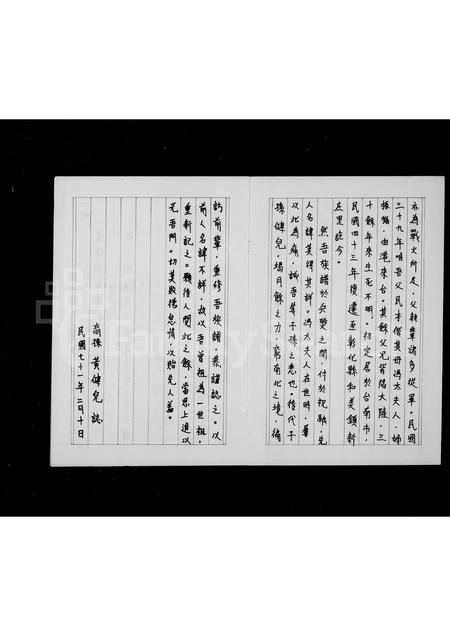 亦為戰火所及，父執輩諸多從軍。民國
三十九年唯吾父民才偕其母馮太夫人、姊
振瑞，由港來台。其餘父兄皆陷大陸，三
十餘年來生死不明。初定居於台南市，
民國四十三年復遷至彰化縣和美鎮新
庄里迄今。
然吾族譜於兵燹之間，付於祝融，先
人名諱莫得其詳。馮太夫人在世時，屢
以此為痛，誠吾輩子孫之悲也。後代子
孫健兒，竭月餘之力，窮南北之境，徧
訪前輩，重修吾族譜，恭謹誌之。以
前人名諱不詳，故以吾曾祖為一世祖，
重新記之。願後人閱此之餘，當思上進以
光吾門。切莫敷衍怠惰，以貽先人羞。
裔孫 黃健兒 誌
民國七十一年二月十日